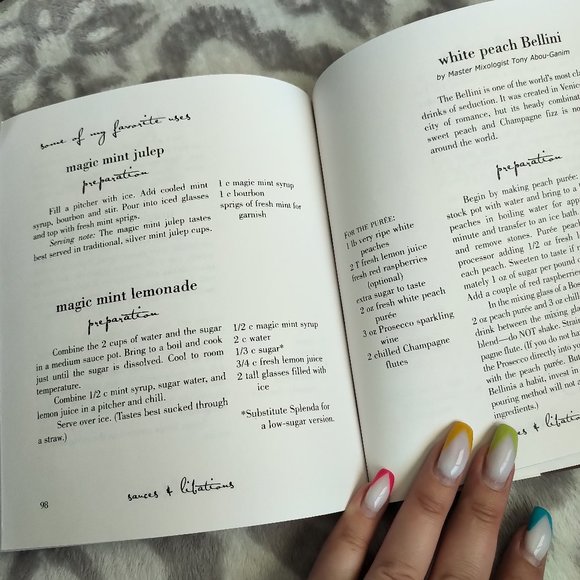 some of my favorite uses
magic mint julep
preparation
Fill a pitcher with ice. Add cooled mint
syrup, bourbon and stir. Pour into iced glasses
and top with fresh mint sprigs.
Serving note: The magic mint julep tastes
best served in traditional, silver mint julep cups.
1 c magic mint syrup
1 c bourbon
sprigs of fresh mint for
garnish
magic mint lemonade
preparation
Combine the 2 cups of water and the sugar
in a medium sauce pot. Bring to a boil and cook
just until the sugar is dissolved. Cool to room
temperature.
Combine 1/2 c mint syrup, sugar water, and
lemon juice in a pitcher and chill.
Serve over ice. (Tastes best sucked through
a straw.)
1/2 c magic mint syrup
2 c water
1/3 c sugar*
3/4 c fresh lemon juice
2 tall glasses filled with
ice
*Substitute Splenda for
a low-sugar version.
98
sauces & libations
white peach Bellini
by Master Mixologist Tony Abou-Ganim
The Bellini is one of the world's most
drinks of seduction. It was created in
city of romance, but its heady
sweet peach and Champagne fizz is
around the world.
preparation
FOR THE PURÉE:
1 lb very ripe white
peaches
2 T fresh lemon juice
fresh red raspberries
(optional)
extra sugar to taste
2 oz fresh white peach
purée
3 oz Prosecco sparkling
wine
2 chilled Champagne
flutes
Begin by making peach purée:
stock pot with water and bring to a
peaches in boiling water for
minute and transfer to an ice
and remove stones. Purée
processor adding 1/2 oz fresh
each peach. Sweeten to taste if
mately 1 oz of sugar per pound
Add a couple of red
In the mixing glass of a
2 oz peach purée and 3 oz
drink between the mixing
blend—do NOT shake.
pagne flute. (If you do not
the Prosecco directly into
with the peach purée. But
Bellinis a habit, invest in
pouring method will not
ingredients.)